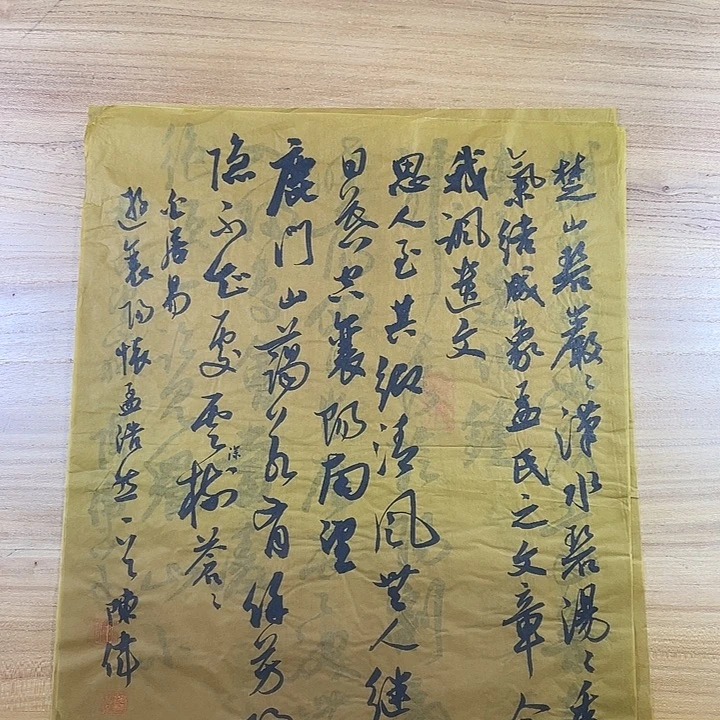 楚山碧巖〻漢水碧湯〻秀
氣結成象孟氏之文章今
我諷遺文
思人至其鄉清風無人繼
日暮空襄陽南望
鹿門山藹若有餘芳
隐不知處雲深樹蒼〻
白居易
遊襄陽懷孟浩然一首陳偉